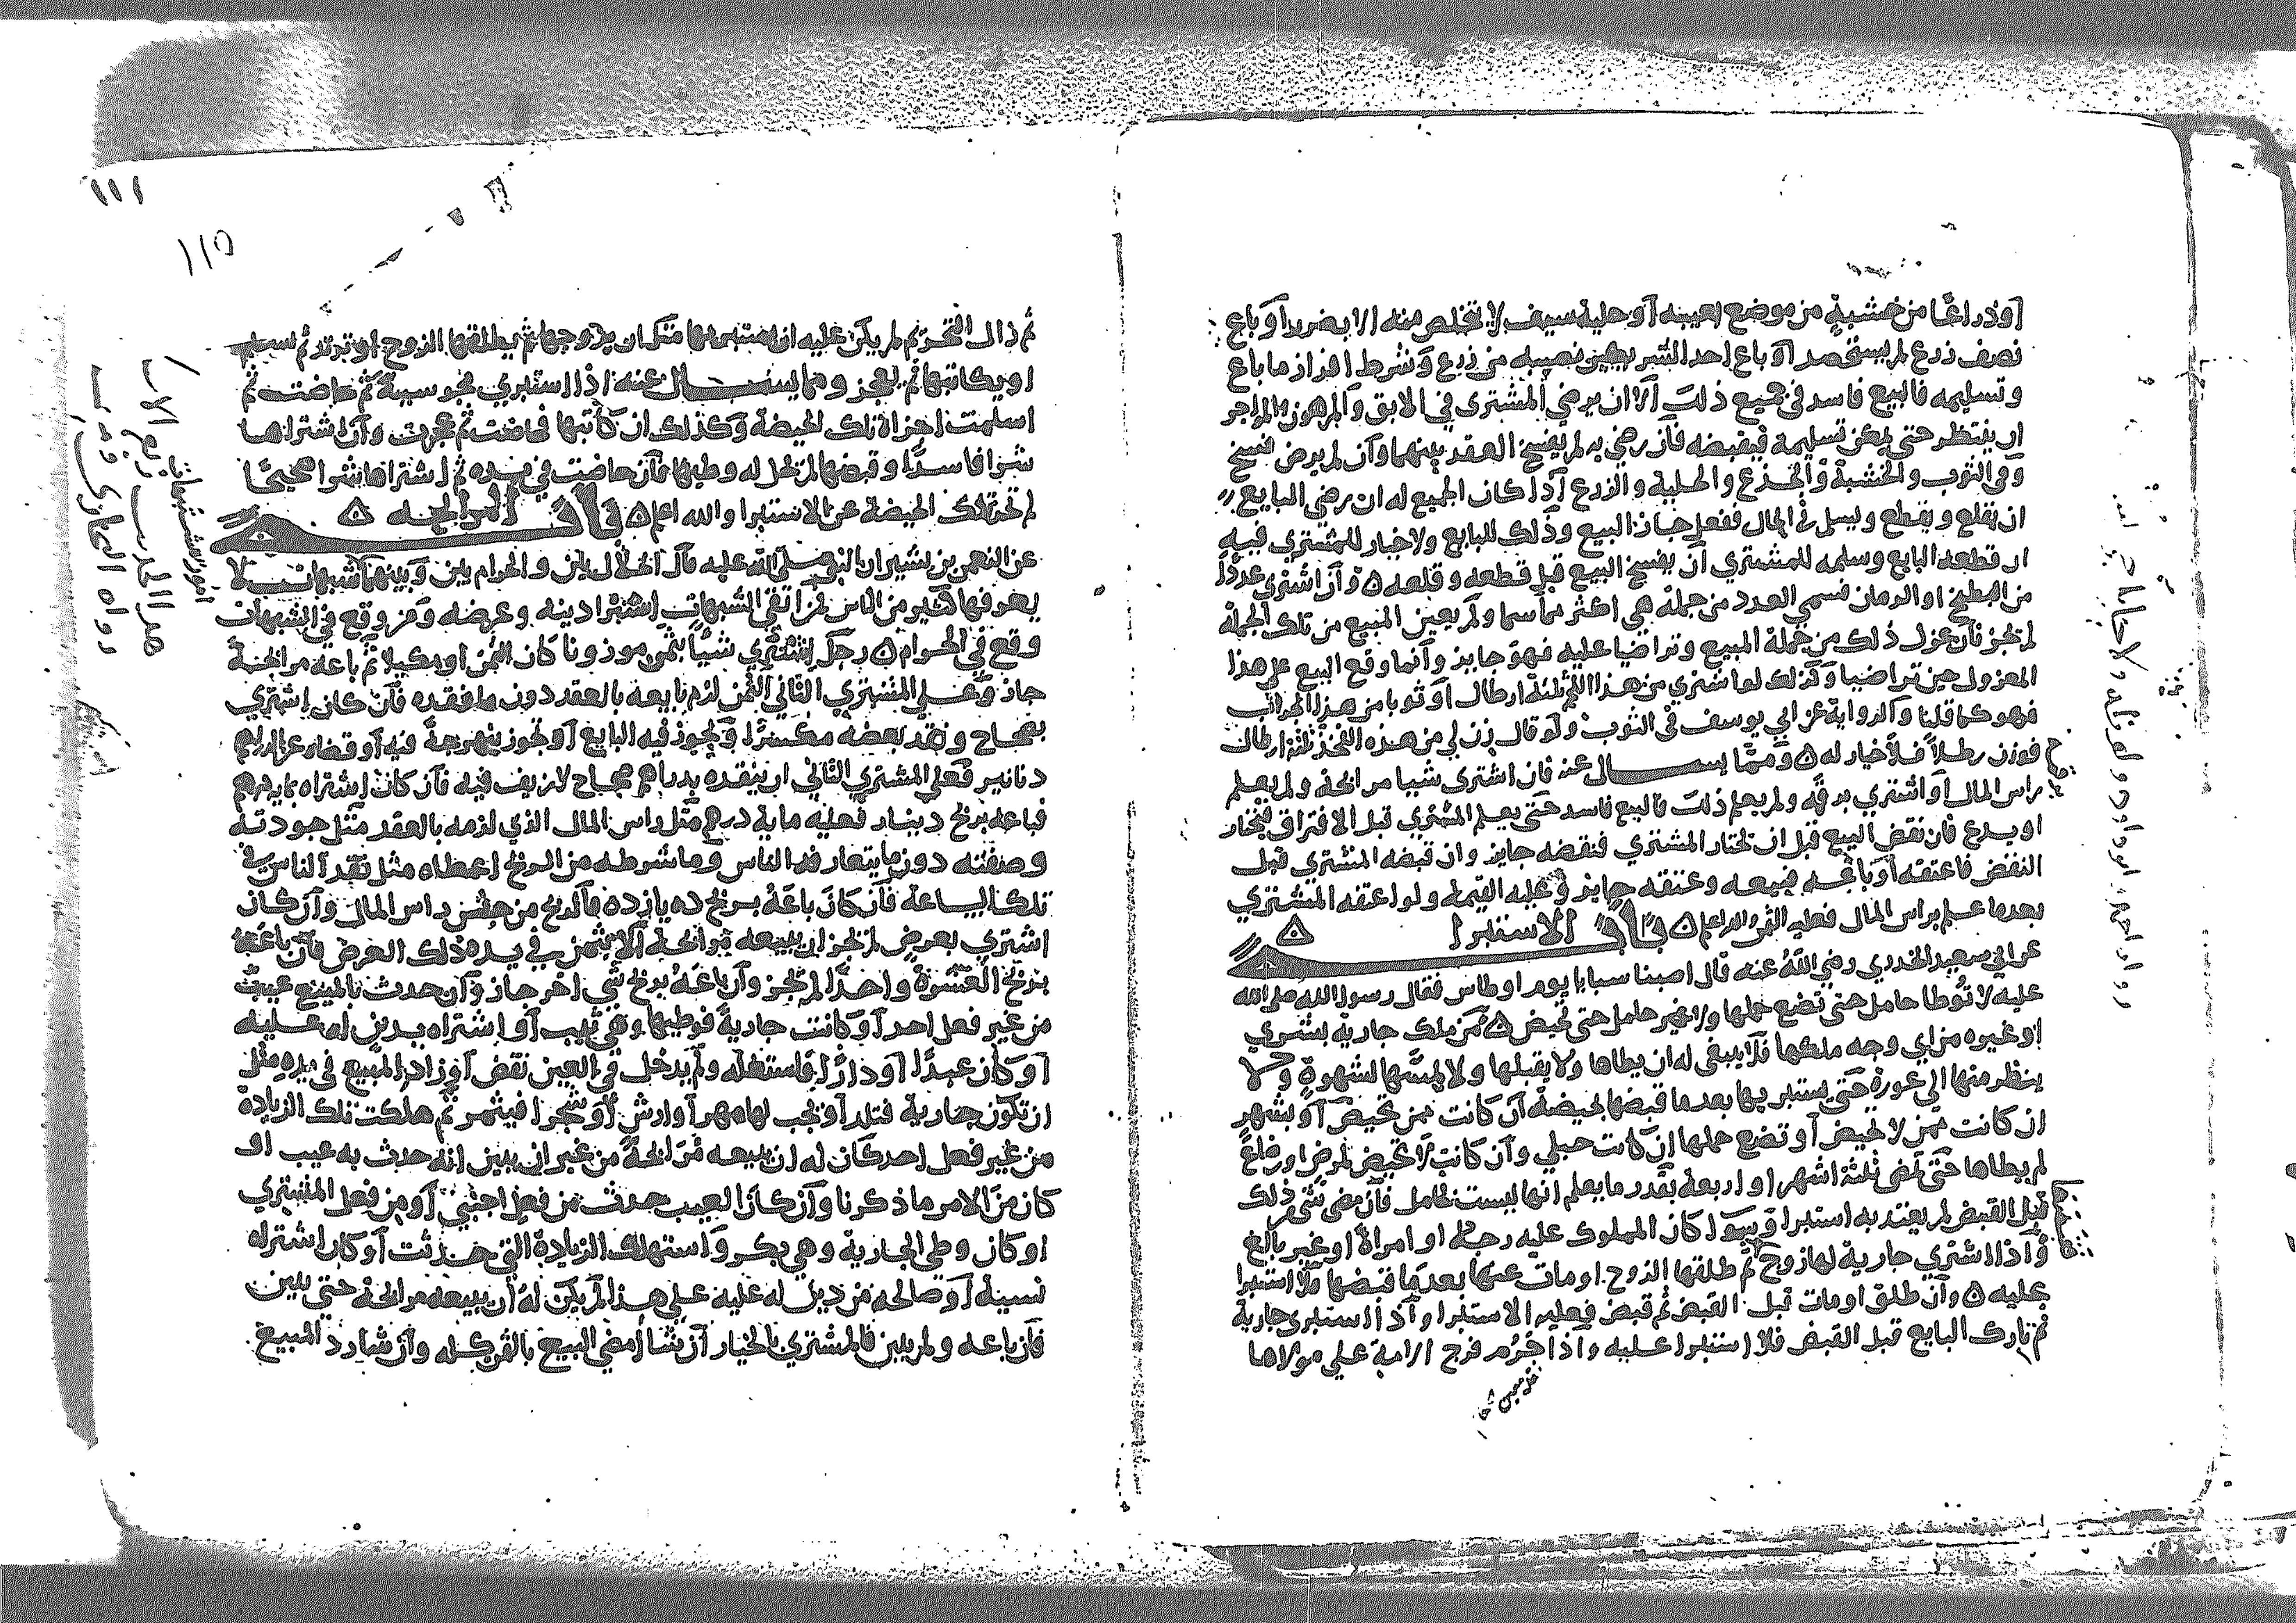 أو ذراعًا من خشبةٍ من موضع لعينه أو حلية سيف لا تخلص منه الا بضرر أو باع
نصف زرع لم يستحصد أو باع احد الشريكين نصيبه من زرع وشرط افراز ما باع
وتسليمه فالبيع فاسد في جميع ذلك الا ان يرضي المشتري في الابق والمرهون والمواجر
ان ينتظر حتى يمكن تسليمه فيقبضه فان رضي به لم يفسخ العقد بينهما وان لم يرض فسخ
وفي الثوب والخشبة والجذع والحلية والزرع اذا كان الجميع له ان رضي البايع
ان يقلع ويقطع ويسلم في الحال ففعل جاز البيع وذلك للبايع ولا خيار للمشتري فيه
ان قطعه البايع وسلمه للمشتري أن يفسخ البيع قبل قطعه وقلعه ۵ وأن اشترى عددًا
من البطيخ او الرمان فسمي العدد من جملة هي اكثر مما سما ولم يعين المبيع من تلك الجملة
لم يجز فان عزل ذلك من جملة المبيع وتراضيا عليه فهو جايز وأنما وقع البيع على هذا
المعزول حين تراضيا وكذلك لو اشتري من هذا اللحم ثلثة ارطال أو ثوبا من هذا الجراب
فهو كما قلنا والرواية عن ابي يوسف في الثوب ولو قال زن لي من هذه الفخذ ثلثة ارطال
فوزن رطلاً فلا خيار له ۵ ومما يسال عنه فان اشترى شيا مرابحة ولم يعلم
براس المال أو اشتري برقمه ولم يعلم ذلك فالبيع فاسد حتى يعلم المشتري قبل الافتراق فيختار
او يدع فان نقض البيع قبل ان يختار المشتري فنقضه جايز وان قبضه المشتري قبل
النقض فاعتقه أو باعه فبيعه وعتقه جايز وعليه القيمة ولو اعتقه المشتري
بعد ما علم براس المال فعليه الثمن والله اعلم ۵ باب الاستبرا ۵
عن ابي سعيد الخدري رضي الله عنه قال اصبنا سبايا يوم اوطاس فقال رسول الله صلى الله
عليه لا توطا حامل حتى تضع حملها ولا غير حامل حتى تحيض ۵ من ملك جارية بشري
أو غيره من اي وجه ملكها فلا ينبغي له ان يطاها ولا يقبلها ولا يمسها لشهوةٍ ولا
ينظر منها الي عورة حتى يستبريها بعد ما قبضها بحيضة أن كانت ممن تحيض أو بشهر
ان كانت ممن لا تحيض أو تضع حملها إن كانت حبلي وأن كانت لا تحيض لمرض او رضاع
لم يطاها حتى تمضي ثلثة اشهر او اربعة بقدر ما يعلم انها ليست بحامل فان مضى شي من ذلك
قبل القبض لم يعتد به استبرا وسوا كان المملوك عليه رجلا او امراة او غير بالغ
وأذا اشتري جارية لها زوج ثم طلقها الزوج او مات عنها بعد ما قبضها فلا استبرا
عليه ۵ وأن طلق او مات قبل القبض ثم قبض فعليه الاستبرا وأذا استبرى جارية
ثم تارك البايع قبل القبض فلا استبرا عليه وأذا حرُم فرج الامة علي مولاها
١١١
١١٥
ثم زال التحريم لم يكن عليه ان يستبريها مثل ان يزوجها ثم يطلقها الزوج او ترتد ثم تسلم
او يكاتبها ثم يعجز ومما يسال عنه اذا استبري مجوسية ثم حاضت ثم
اسلمت اجزاة تلك الحيضة وكذلك ان كاتبها فحاضت ثم عجزت وأن اشتراها
شرا فاسدًا وقبضها لم يحل له وطيها فان حاضت في يده ثم اشتراها شرا صحيحًا
لم تجز تلك الحيضة عن الاستبرا والله اعلم ۵ باب المرابحه ۵
عن النعمن بن بشير ان النبي صلى الله عليه قال الحلال بين والحرام بين وبينهما شبهات لا
يعرفها كثير من الناس فمن اتقي الشبهات استبرا دينه وعرضه ومن وقع في الشبهات
وقع في الحرام ۵ رجل اشتري شيًا بثمن موزونا كان الثمن او مكيلا ثم باعه مرابحة
جاز وعلي المشتري الثاني الثمن لزم بايعه بالعقد دون ما نقده فان كان إشتري
بصحاح ونقد بعضه مكسرًا وتجوز فيه البايع أو تجوز بنهرجة فيه أو قضاه عن الدراهم
دنانير فعلي المشتري الثاني ان ينقده بدراهم صحاح لا زيف فيه فأن كان اشتراه بماية درهم
فباعه بربح دينار فعليه ماية درهم مثل راس المال الذي لزمه بالعقد مثل جودته
وصفته دون ما يتعارفه الناس وما شرطه من الربح اعطاه مثل نقد الناس في
تلك الساعة فأن كان باعَهُ بربح ده يازده فالربح من جنس راس المال وأن كان
اشتري بعرض لم يجز ان يبيعه مرابحة ألا ممن في يده ذلك العرض فأن باعَهُ
بربح العشرة واحدًا لم يجز وأن باعَهُ بربح شي اخر جاز وأن حدث بالمبيع عيبٌ
من غير فعل احد أو كانت جارية فوطيها وهي ثيب أو إشتراه بدين له عليه
أو كان عبدًا أو دارًا فاستغله ولم يدخل في العين نقض أو زاد المبيع في يده مثل
ان تكون جارية فتلد أو يجب لها مهر أو ارش أو شجرا فيثمر ثم هلكت تلك الزيادة
من غير فعل احد كان له ان يبيعه مُرابحةً من غير ان يبين انه حدث به عيب او
كان من الامر ما ذكرنا وأن كان العيب حدث من فعل اجنبي أو من فعل المشتري
او كان وطي الجارية وهي بكر واستهلك الزيادة التي حدثت أو كان اشتراه
نسية أو صالحه من دين له عليه علي هذا لم يكن لهُ أن يبيعه مرابحة حتى يبين
فأن باعه ولم يبين فالمشتري بالخيار أن شا أمضي البيع بالثمن كله وأن شا رد المبيع